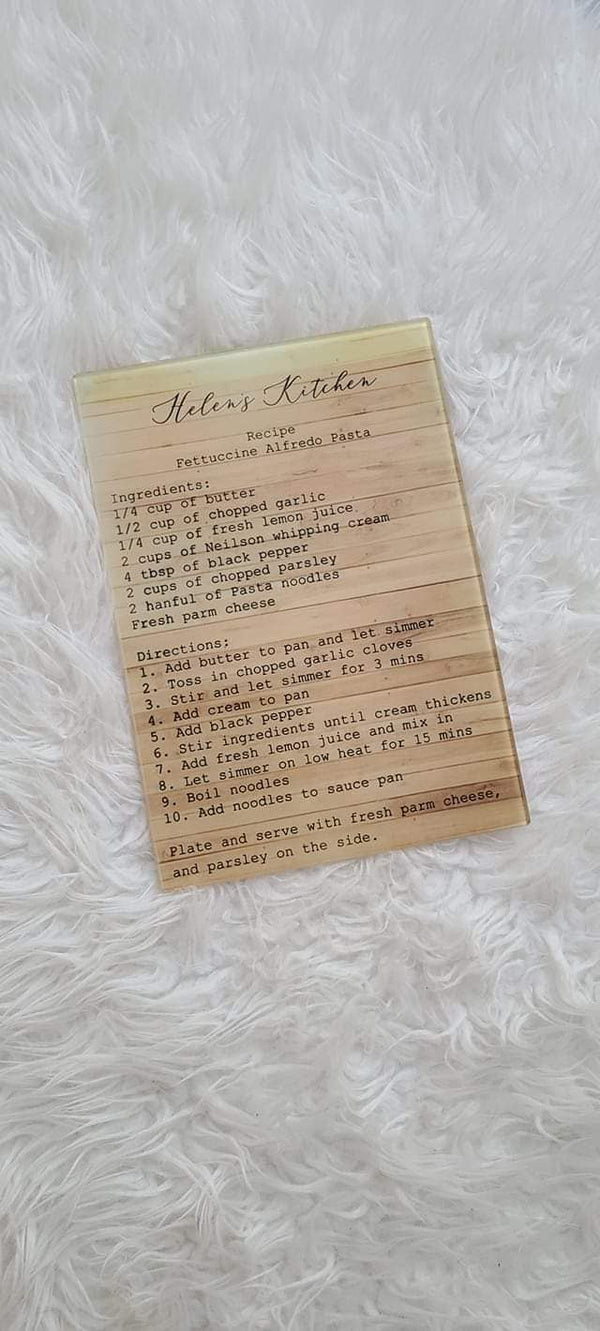 Helen's Kitchen
Recipe
Fettuccine Alfredo Pasta
Ingredients:
1/4 cup of butter
1/2 cup of chopped garlic
1/4 cup of fresh lemon juice
2 cups of Neilson whipping cream
4 tbsp of black pepper
2 cups of chopped parsley
2 hanful of Pasta noodles
Fresh parm cheese
Directions;
1. Add butter to pan and let simmer
2. Toss in chopped garlic cloves
3. Stir and let simmer for 3 mins
4. Add cream to pan
5. Add black pepper
6. Stir ingredients until cream thickens
7. Add fresh lemon juice and mix in
8. Let simmer on low heat for 15 mins
9. Boil noodles
10. Add noodles to sauce pan
Plate and serve with fresh parm cheese,
and parsley on the side.